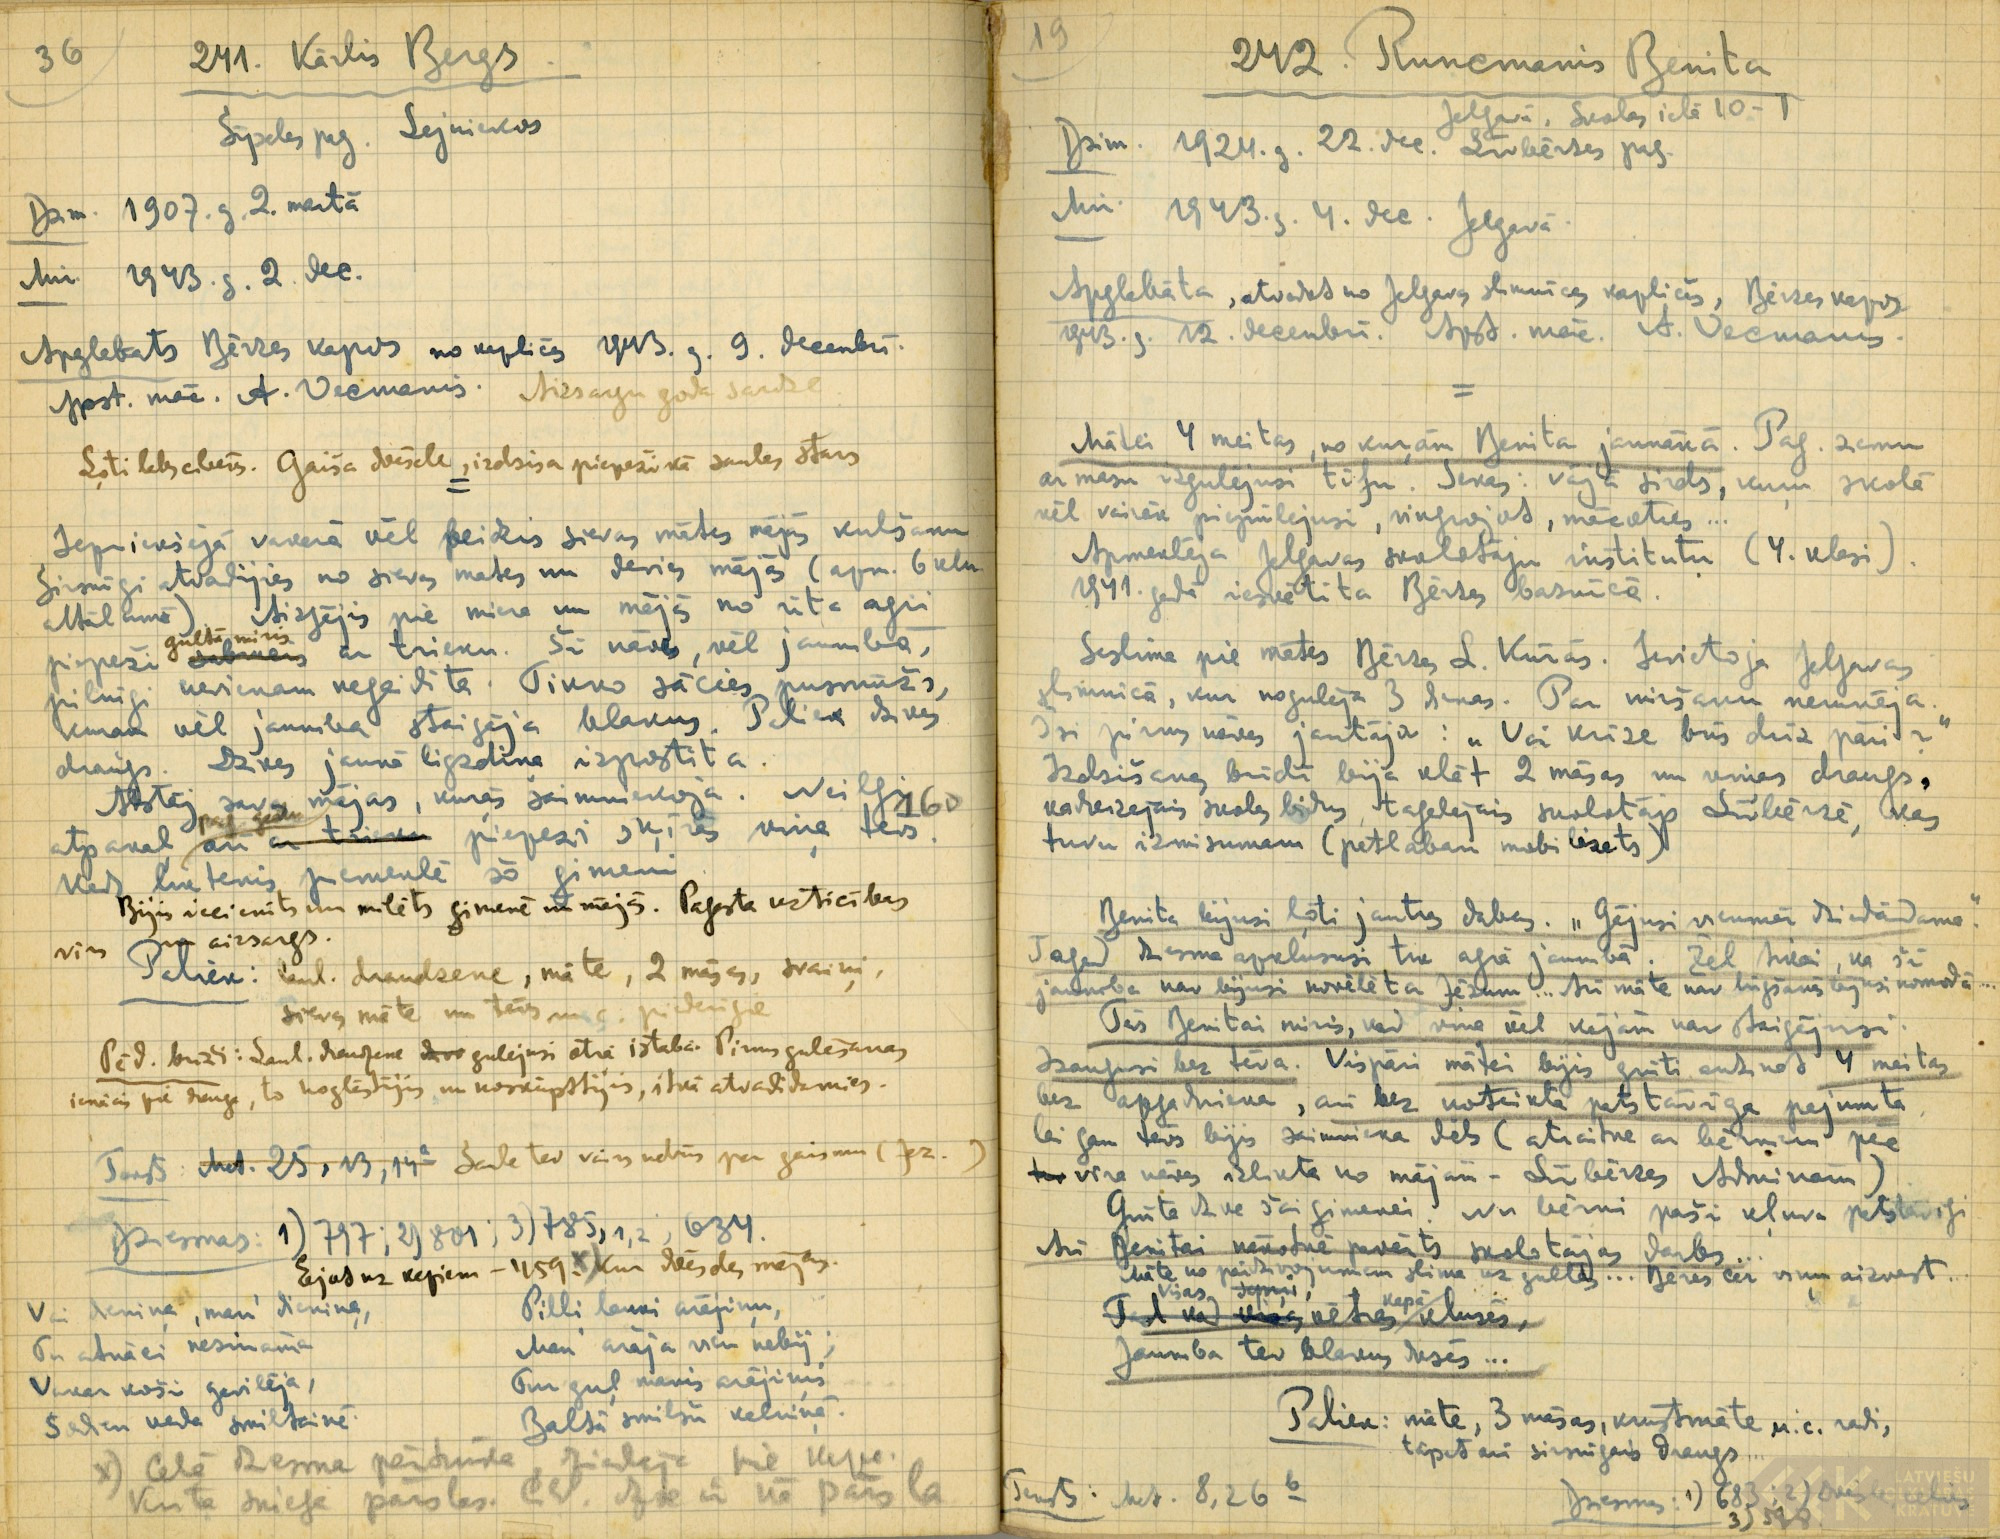 36
241. Kārlis Bergs.
Sīpeles pag. Lejniekos
Dzim. 1907. g. 2. martā
Mir. 1943. g. 2. dec.
Apglabāts Bērzes kapos no kapličas 1943. g. 9. decembrī.
Apst. māc. A. Vecmanis. Aizsargu goda sardze
Ļoti labs cilvēks. Gaiša dvēsele, izdzisa piepeži kā saules stars
=
Iepriekšējā vakarā vēl beidzis sievas mātes mājās kulšanu
Sirsnīgi atvadījies no sievas mātes un devies mājās (apm. 6 klm
attālumā). Aizgājis pie miera un mājās no rīta agri
gultā miris
piepeži ar trieku. Šī nāve, vēl jaunībā,
pilnīgi nevienam negaidīta. Tikko sācies pusmūžs,
kuram vēl jaunība staigāja blakus. Paliek dzīves
draugs. Dzīves jaunā ligzdiņa izpostīta.
Atstāj savas mājas, kurās saimniekoja. Neilgi
160
pag. gadu
atpakaļ arī ar trieku piepeži šķīrās viņa tēvs.
Kāds liktenis piemeklē šo ģimeni
Bijis iecienīts un mīlēts ģimenē un mājās. Pagasta uzticības
vīrs un aizsargs.
Paliek: laul. draudzene, māte, 2 māsas, svaiņi,
sievas māte un tēvs u. c. piederīgie
Pēd. brīži: Laul. draudzene gulējusi otrā istabā. Pirms gulēšanas
ienācis pie drauga, to noglāstījis un noskūpstījis, it kā atvadīdamies.
Teksts: Mat. 25, 13, 14a Saule tev vairs nebūs par gaismu (Jez. )
Dziesmas: 1) 797; 2) 801; 3) 785, 1,2; 634.
Ejot uz kapiem – 459 x) Kur dvēseles mājas.
Vai dieniņa, man' dieniņa,
Tu atnāci nezināma
Vakar koši gavilēja,
Šodien veda smiltainē.
Pilli lauki arājiņu,
Man' arāja vien nebij;
Tur guļ manis arājiņis
Baltā smilšu kalniņā.
x) Ceļā dziesma pārtrūka, dziedāja pie kapa.
Krita sniega pārslas. Cilv. dzīve ir kā pārsla
19
242. Runcmanis Benita
Jelgavā, Skolas ielā 10 - 1
Dzim. 1924. g. 22. dec. Līvbērzes pag.
Mir. 1943. g. 4. dec. Jelgavā.
Apglabāta, atvedot no Jelgavas slimnīcas kapličas, Bērzes kapos
1943. g. 12. decembrī. Apst. māc. A. Vecmanis.
=
Mātei 4 meitas, no kurām Benita jaunākā. Pag. ziemu
ar māsu izgulējusi tīfu. Sekas: vāja sirds, kuru skolā
vēl vairāk piepūlējusi, vingrojot, mācoties...
Apmeklēja Jelgavas skolotāju institūtu (4. klasi).
1941. gadā iesvētīta Bērzes baznīcā.
Saslima pie mātes Bērzes L. Kūrās. Ievietoja Jelgavas
slimnīcā, kur nogulēja 3 dienas. Par miršanu nerunāja.
Īsi pirms nāves jautāja: „Vai krīze būs drīz pāri?"
Izdzišanas brīdī bija klāt 2 māsas un viņas draugs,
kādreizējais skolas biedrs, tagadējais skolotājs Līvbērzē, kas
tuvu izmisumam (patlaban mobilizēts)
Benita bijusi ļoti jautras dabas. „Gājusi vienmēr dziedādama".
Tagad dziesma apklususi tik agrā jaunībā. Žēl tikai, ka šī
jaunība nav bijusi novēlēta Jēzum... Arī māte nav lūgšanās bijusi nomodā...
Tēvs Benitai miris, kad viņa vēl kājām nav staigājusi.
Izaugusi bez tēva. Vispāri mātei bijis grūti audzināt 4 meitas
bez apgādnieka, arī bez noteikta patstāvīga pajumta
lai gan tēvs bijis saimnieka dēls (atraitne ar bērniem pēc
vīra nāves izlikta no mājām – Līvbērzes Adminam)
Grūta dzīve šai ģimenei. Nu bērni paši kļuva patstāvīgi
Arī Benitai nākotnē pavērts skolotājas darbs...
Māte no pārdzīvojumiem slima uz gultas... Bēres bez viņas aizvest...
visas sāpju, kapā
Tad kad vētras klusēs,
Jaunība tev blakus dusēs...
Paliek: māte, 3 māsas, krustmāte u. c. radi,
tāpat arī sirsnīgais draugs...
Teksts: Mat. 8, 26 b
Dziesmas: 1) 683; 2)
3)
LATVIEŠU
FOLKLORAS
KRĀTUVE